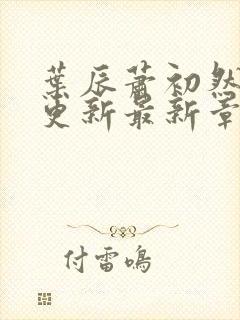 葉辰蕭初然
更新最新章
付雷鳴